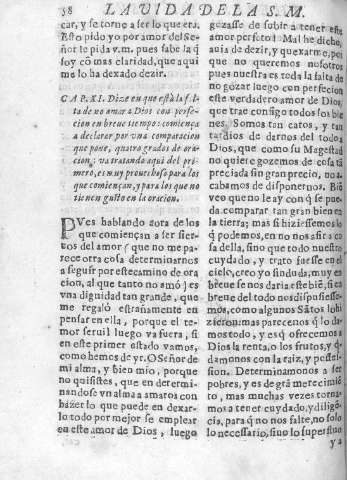 58 LA VIDA DE LA S. M.
car, y se torne a ser lo que era.
Esto pido yo por amor del Se-
ñor le pida v.m. pues sabe la q̃
soy cō mas claridad, que aqui
me lo ha dexado dezir.
CAP. XI. Dize en que està la fal-
ta de no amar a Dios con perfe-
cion en breue tiempo: comiença
a declarar por vna comparacion
que pone, quatro grados de ora-
cion; va tratando aqui del pri-
mero, es muy prouechoso para los
que comiençan, y para los que no
tienen gustos en la oracion.
PVes hablando aora de los
que comiençan a ser sier-
uos del amor (que no me pa-
rece otra cosa determinarnos
a seguir por este camino de ora
cion, al que tanto no amó) es
vna dignidad tan grande, que
me regalo estrañamente en
pensar en ella, porque el te-
mor seruil luego va fuera, si
en este primer estado vamos,
como hemos de yr. O Señor de
mi alma, y bien mio, porque
no quisistes, que en determi-
nandose vn alma a amaros con
hazer lo que puede en dexar-
lo todo por mejor se emplear
en este amor de Dios, luego
gozasse de subir a tener este
amor perfeto! Mal he dicho,
auia de dezir, y quexarme, por
que no queremos nosotros
pues nuestra es toda la falta de
no gozar luego con perfecion
este verdadero amor de Dios,
que trae consigo todos los bie
nes. Somos tan caros, y tan
tardios de darnos del todo a
Dios, que como su Magestad
no quiere gozemos de cosa tā
preciada sin gran precio, no a-
cabamos de disponernos. Biē
veo que no le ay con q̃ se pue-
da comprar tan gran bien en
la tierra; mas si hiziessemos lo
q̃ podemos, en no nos asir a co
sa della, sino que todo nuestro
cuydado, y trato fuesse en el
cielo, creo yo sin duda, muy en
breue se nos daria este biē, si en
breue del todo nos dispusiesse-
mos, como algunos Sātos lo hi
zieron; mas parecenos q̃ lo da-
mos todo, y es q̃ ofrecemos a
Dios la renta, o los frutos, y q̃-
damonos con la raiz, y posses-
sion. Determinamonos a ser
pobres, y es de grā merecimiē-
to, mas muchas vezes torna-
mos a tener cuydado, y diligē-
cia, para q̃ no nos falte, no solo
lo necessario, sino lo superfluo
y a